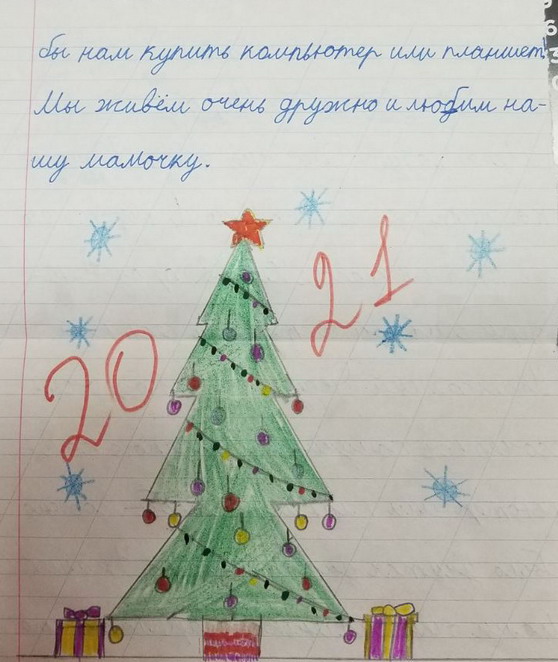 бы нам купить компьютер или планшет.
Мы живём очень дружно и любим на-
шу мамочку.
20 21